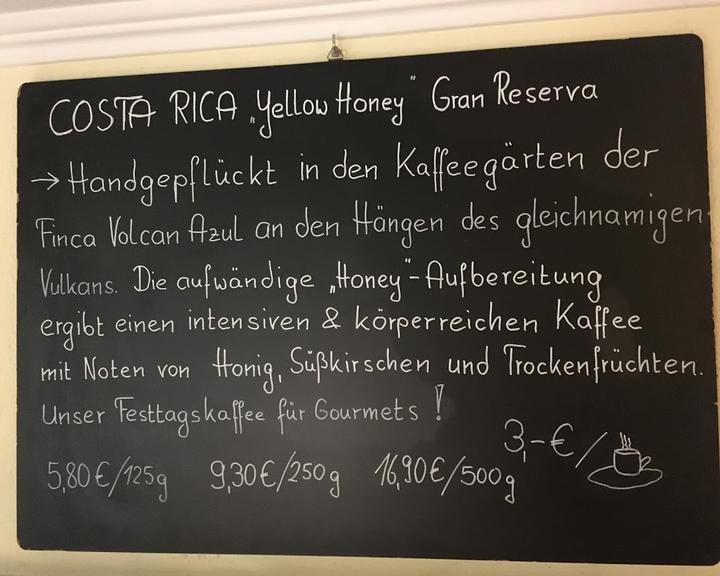 COSTA RICA „Yellow Honey“ Gran Reserva
→ Handgepflückt in den Kaffeegärten der
Finca Volcan Azul an den Hängen des gleichnamigen
Vulkans. Die aufwändige „Honey“-Aufbereitung
ergibt einen intensiven & körperreichen Kaffee
mit Noten von Honig, Süßkirschen und Trockenfrüchten.
Unser Festtagskaffee für Gourmets!
3,-€/
5,80€/125g 9,30€/250g 16,90€/500g